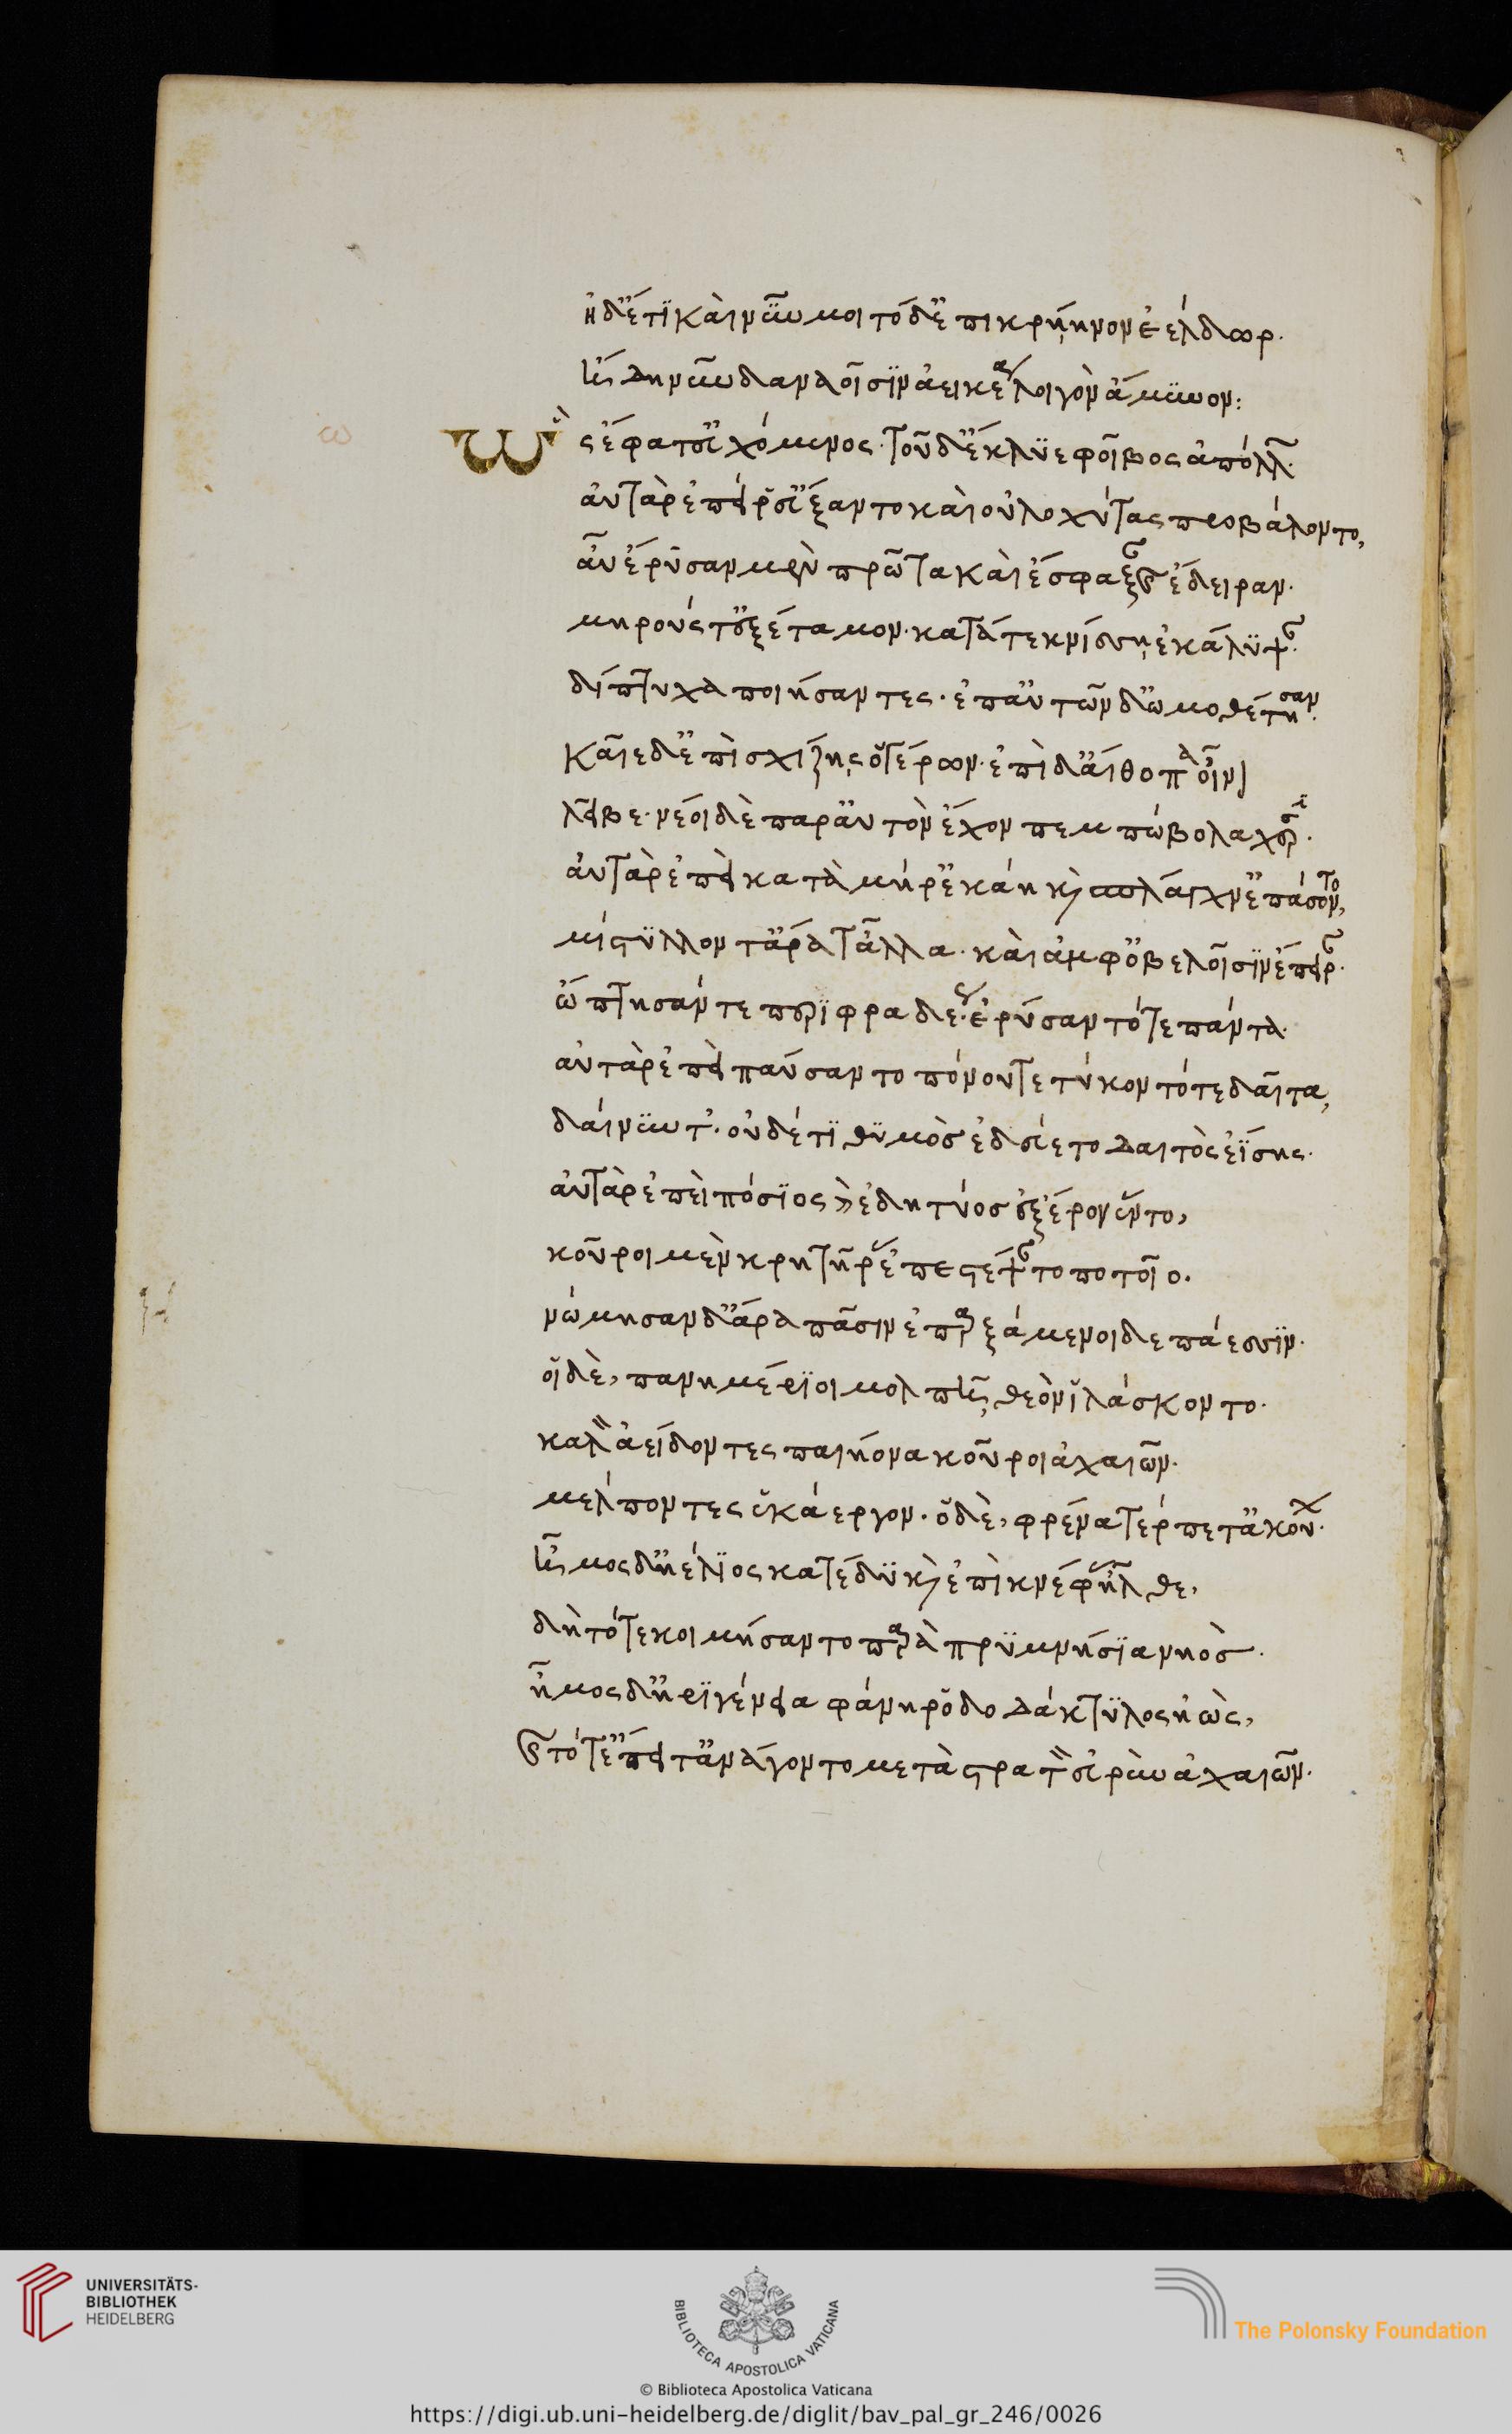 ἠδ' ἔτι καὶ νῦν μοι τόδ' ἐπικρήηνον ἐέλδωρ.
ἤδη νῦν δαναοῖσιν ἀεικέα λοιγὸν ἄμυνον:
ὣς ἔφατ' εὐχόμενος· τοῦ δ' ἔκλυε φοῖβος ἀπόλλων.
αὐτὰρ ἐπεί ῥ' εὔξαντο καὶ οὐλοχύτας προβάλοντο,
αὖ ἔρυσαν μὲν πρῶτα καὶ ἔσφαξαν καὶ ἔδειραν.
μηρούς τ' ἐξέταμον· κατά τε κνίσσῃ ἐκάλυψαν.
δίπτυχα ποιήσαντες· ἐπ' αὐτῶν δ' ὠμοθέτησαν.
καῖε δ' ἐπὶ σχίζῃς ὁ γέρων· ἐπὶ δ' αἴθοπα οἶνον
λεῖβε· νέοι δὲ παρ' αὐτὸν ἔχον πεμπώβολα χερσί.
αὐτὰρ ἐπεὶ κατὰ μῆρ' ἐκάη καὶ σπλάγχν' ἐπάσαντο,
μίστυλλόν τ' ἄρα τἆλλα· καὶ ἀμφ' ὀβελοῖσιν ἔπειραν.
ὤπτησάν τε περιφραδέως· ἐρύσαντό τε πάντα.
αὐτὰρ ἐπεὶ παύσαντο πόνου τετύκοντό τε δαῖτα,
δαίνυντ'. οὐδέ τι θυμὸς ἐδεύετο δαιτὸς ἐΐσης.
αὐτὰρ ἐπεὶ πόσιος καὶ ἐδητύος ἐξ ἔρον ἕντο,
κοῦροι μὲν κρητῆρας ἐπεστέψαντο ποτοῖο.
νώμησαν δ' ἄρα πᾶσιν ἐπαρξάμενοι δεπάεσσιν.
οἱ δὲ, πανημέριοι μολπῇ θεὸν ἱλάσκοντο.
καλὸν ἀείδοντες παιήονα κοῦροι ἀχαιῶν.
μέλποντες ἑκάεργον. ὁ δὲ, φρένα τέρπετ' ἀκούων.
ἦμος δ' ἠέλιος κατέδυ καὶ ἐπὶ κνέφας ἦλθε,
δὴ τότε κοιμήσαντο παρὰ πρυμνήσια νηός.
ἦμος δ' ἠριγένεια φάνη ῥοδοδάκτυλος ἠὼς,
καὶ τότ' ἔπειτ' ἀνάγοντο μετὰ στρατὸν εὐρὺν ἀχαιῶν.
UNIVERSITÄTS-
BIBLIOTHEK
HEIDELBERG
BIBLIOTECA APOSTOLICA VATICANA
The Polonsky Foundation
© Biblioteca Apostolica Vaticana
https://digi.ub.uni-heidelberg.de/diglit/bav_pal_gr_246/0026